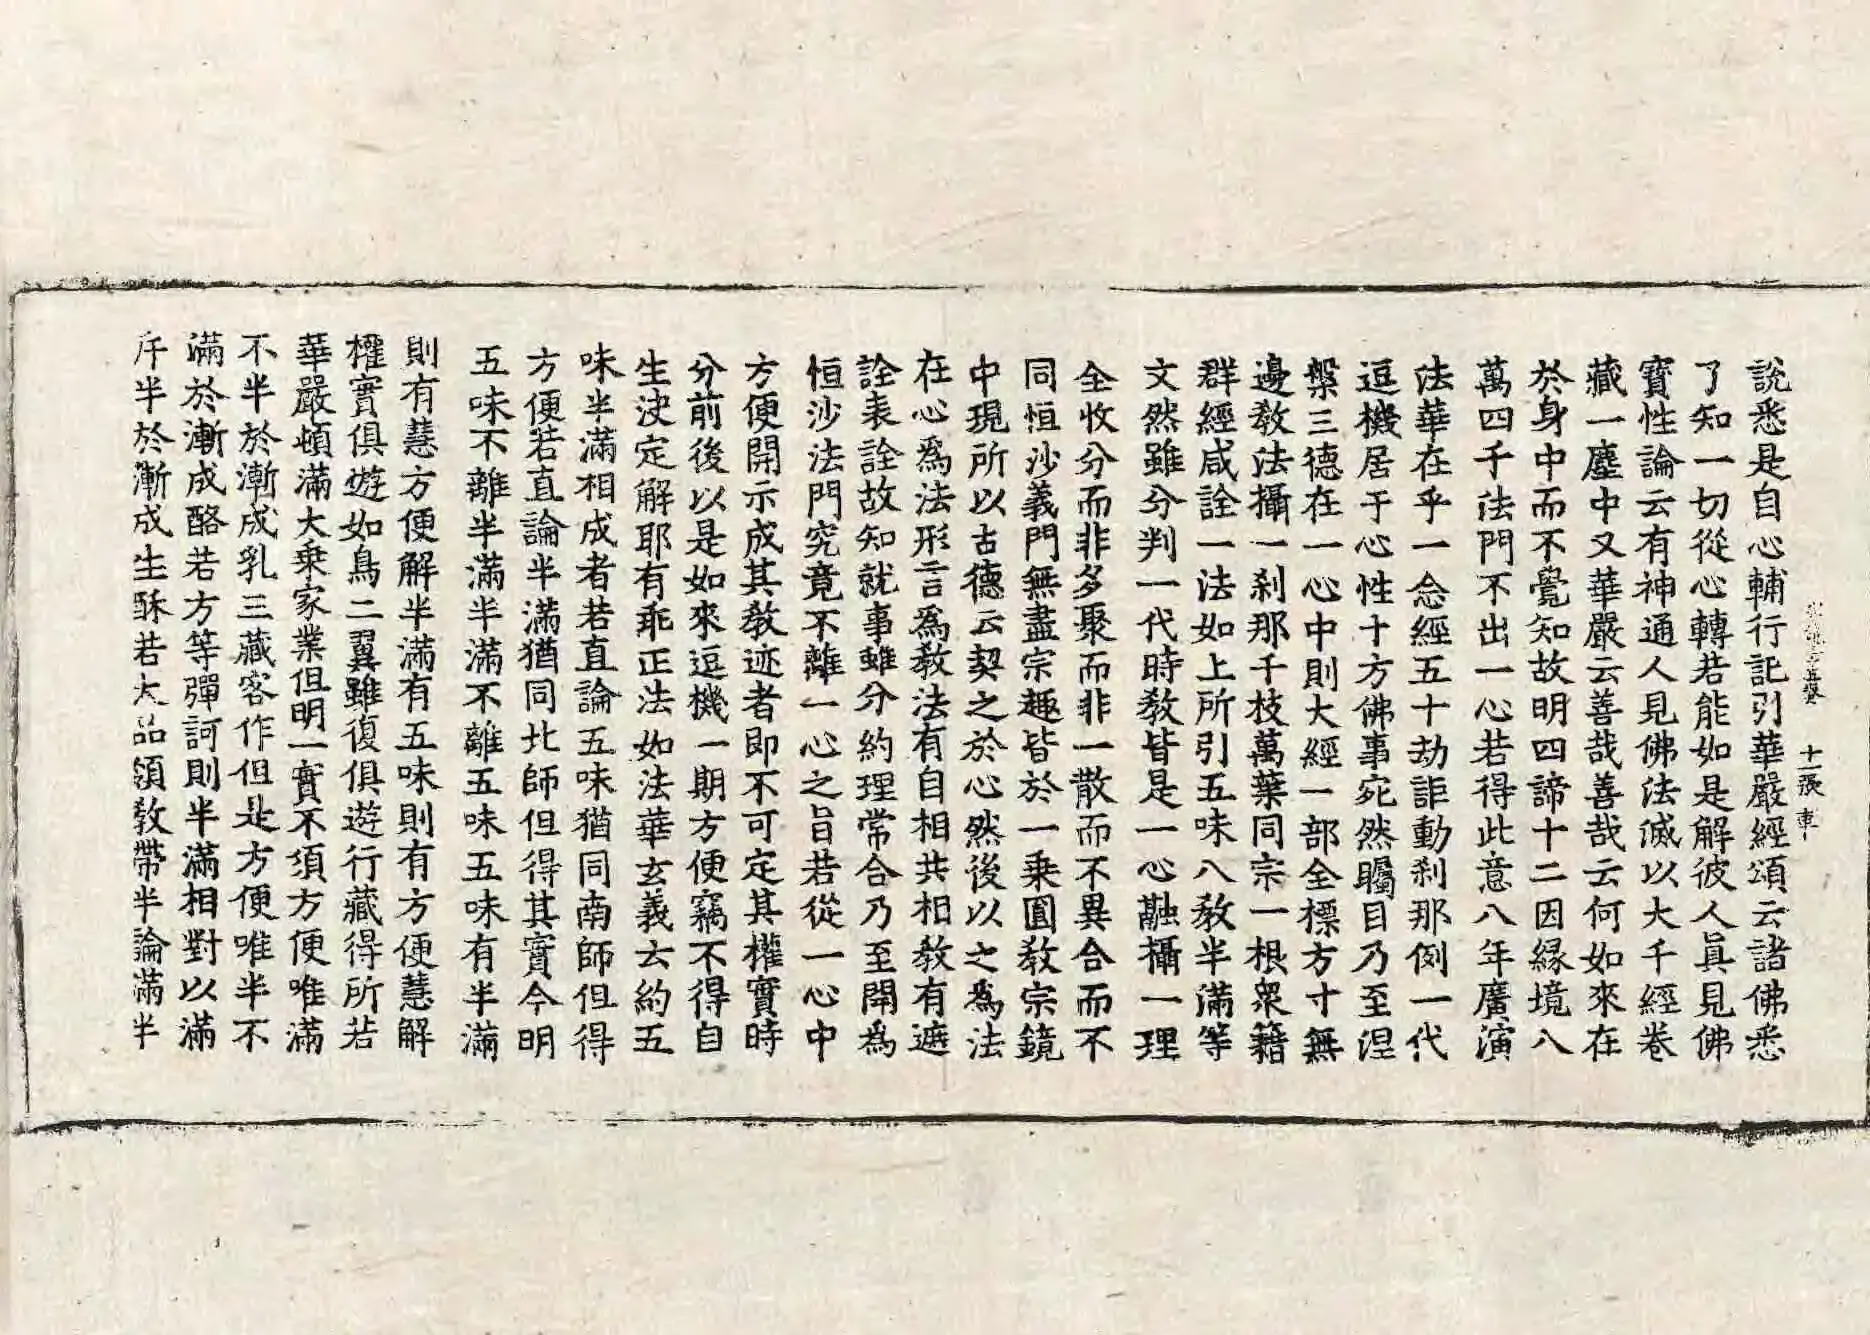 説悉是自心輔行記引華嚴經頌云諸佛悉
了知一切從心轉若能如是解彼人眞見佛
寶性論云有神通人見佛法滅以大千經卷
藏一塵中又華嚴云善哉善哉云何如來在
於身中而不覺知故明四諦十二因緣境八
萬四千法門不出一心若得此意八年廣演
法華在乎一念經五十劫詎動刹那例一代
逗機居于心性十方佛事宛然矚目乃至涅
槃三德在一心中則大經一部全標方寸無
邊教法攝一刹那千枝萬葉同宗一根衆籍
群經咸詮一法如上所引五味八教半滿等
文然雖分判一代時教皆是一心融攝一理
全收分而非多聚而非一散而不異合而不
同恒沙義門無盡宗趣皆於一乗圎教宗鏡
中現所以古德云契之於心然後以之爲法
在心爲法形言爲教法有自相共相教有遮
詮表詮故知就事雖分約理常合乃至開爲
恒沙法門究竟不離一心之旨若從一心中
方便開示成其教迹者即不可定其權實時
分前後以是如來逗機一期方便竊不得自
生決定解耶有乖正法如法華玄義云約五
味半滿相成者若直論五味猶同南師但得
方便若直論半滿猶同北師但得其實今明
五味不離半滿半滿不離五味五味有半滿
則有慧方便解半滿有五味則有方便慧解
權實俱遊如鳥二翼雖復俱遊行藏得所若
華嚴頓滿大乗家業但明一實不須方便唯滿
不半於漸成乳三藏客作但是方便唯半不
滿於漸成酪若方等彈訶則半滿相對以滿
斥半於漸成生酥若大品領教帶半論滿半
十一張 車